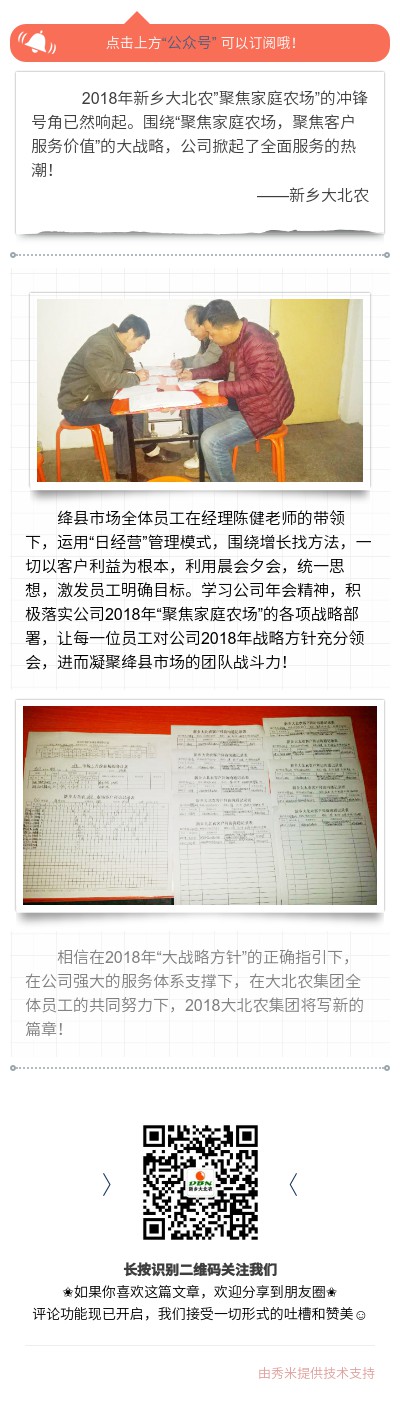 点击上方“公众号” 可以订阅哦！
2018年新乡大北农”聚焦家庭农场”的冲锋
号角已然响起。围绕“聚焦家庭农场，聚焦客户
服务价值”的大战略，公司掀起了全面服务的热
潮！
——新乡大北农
绛县市场全体员工在经理陈健老师的带领
下，运用“日经营”管理模式，围绕增长找方法，一
切以客户利益为根本，利用晨会夕会，统一思
想，激发员工明确目标。学习公司年会精神，积
极落实公司2018年“聚焦家庭农场”的各项战略部
署，让每一位员工对公司2018年战略方针充分领
会，进而凝聚绛县市场的团队战斗力！
相信在2018年“大战略方针”的正确指引下，
在公司强大的服务体系支撑下，在大北农集团全
体员工的共同努力下，2018大北农集团将写新的
篇章！
DBN
新乡大北农
长按识别二维码关注我们
❀如果你喜欢这篇文章，欢迎分享到朋友圈❀
评论功能现已开启，我们接受一切形式的吐槽和赞美☺
由秀米提供技术支持